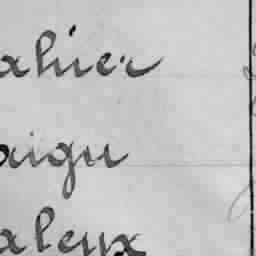 ahier
aigu
aleux